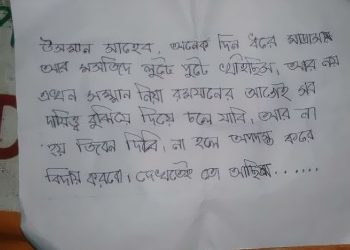 উসমান সাহেব, অনেক দিন ধরে মাদ্রাসা
আর মসজিদ লুটে পুটে খাইছিস, আর নয়
এখন সম্মান নিয়া রমযানের আগেই সব
দায়িত্ব বুঝিয়ে দিয়ে চলে যাবি, আর না
হয় জিবন দিবি, না হলে অপদস্ত করে
বিদায় করবো, দেখতেই তো আছিস.......